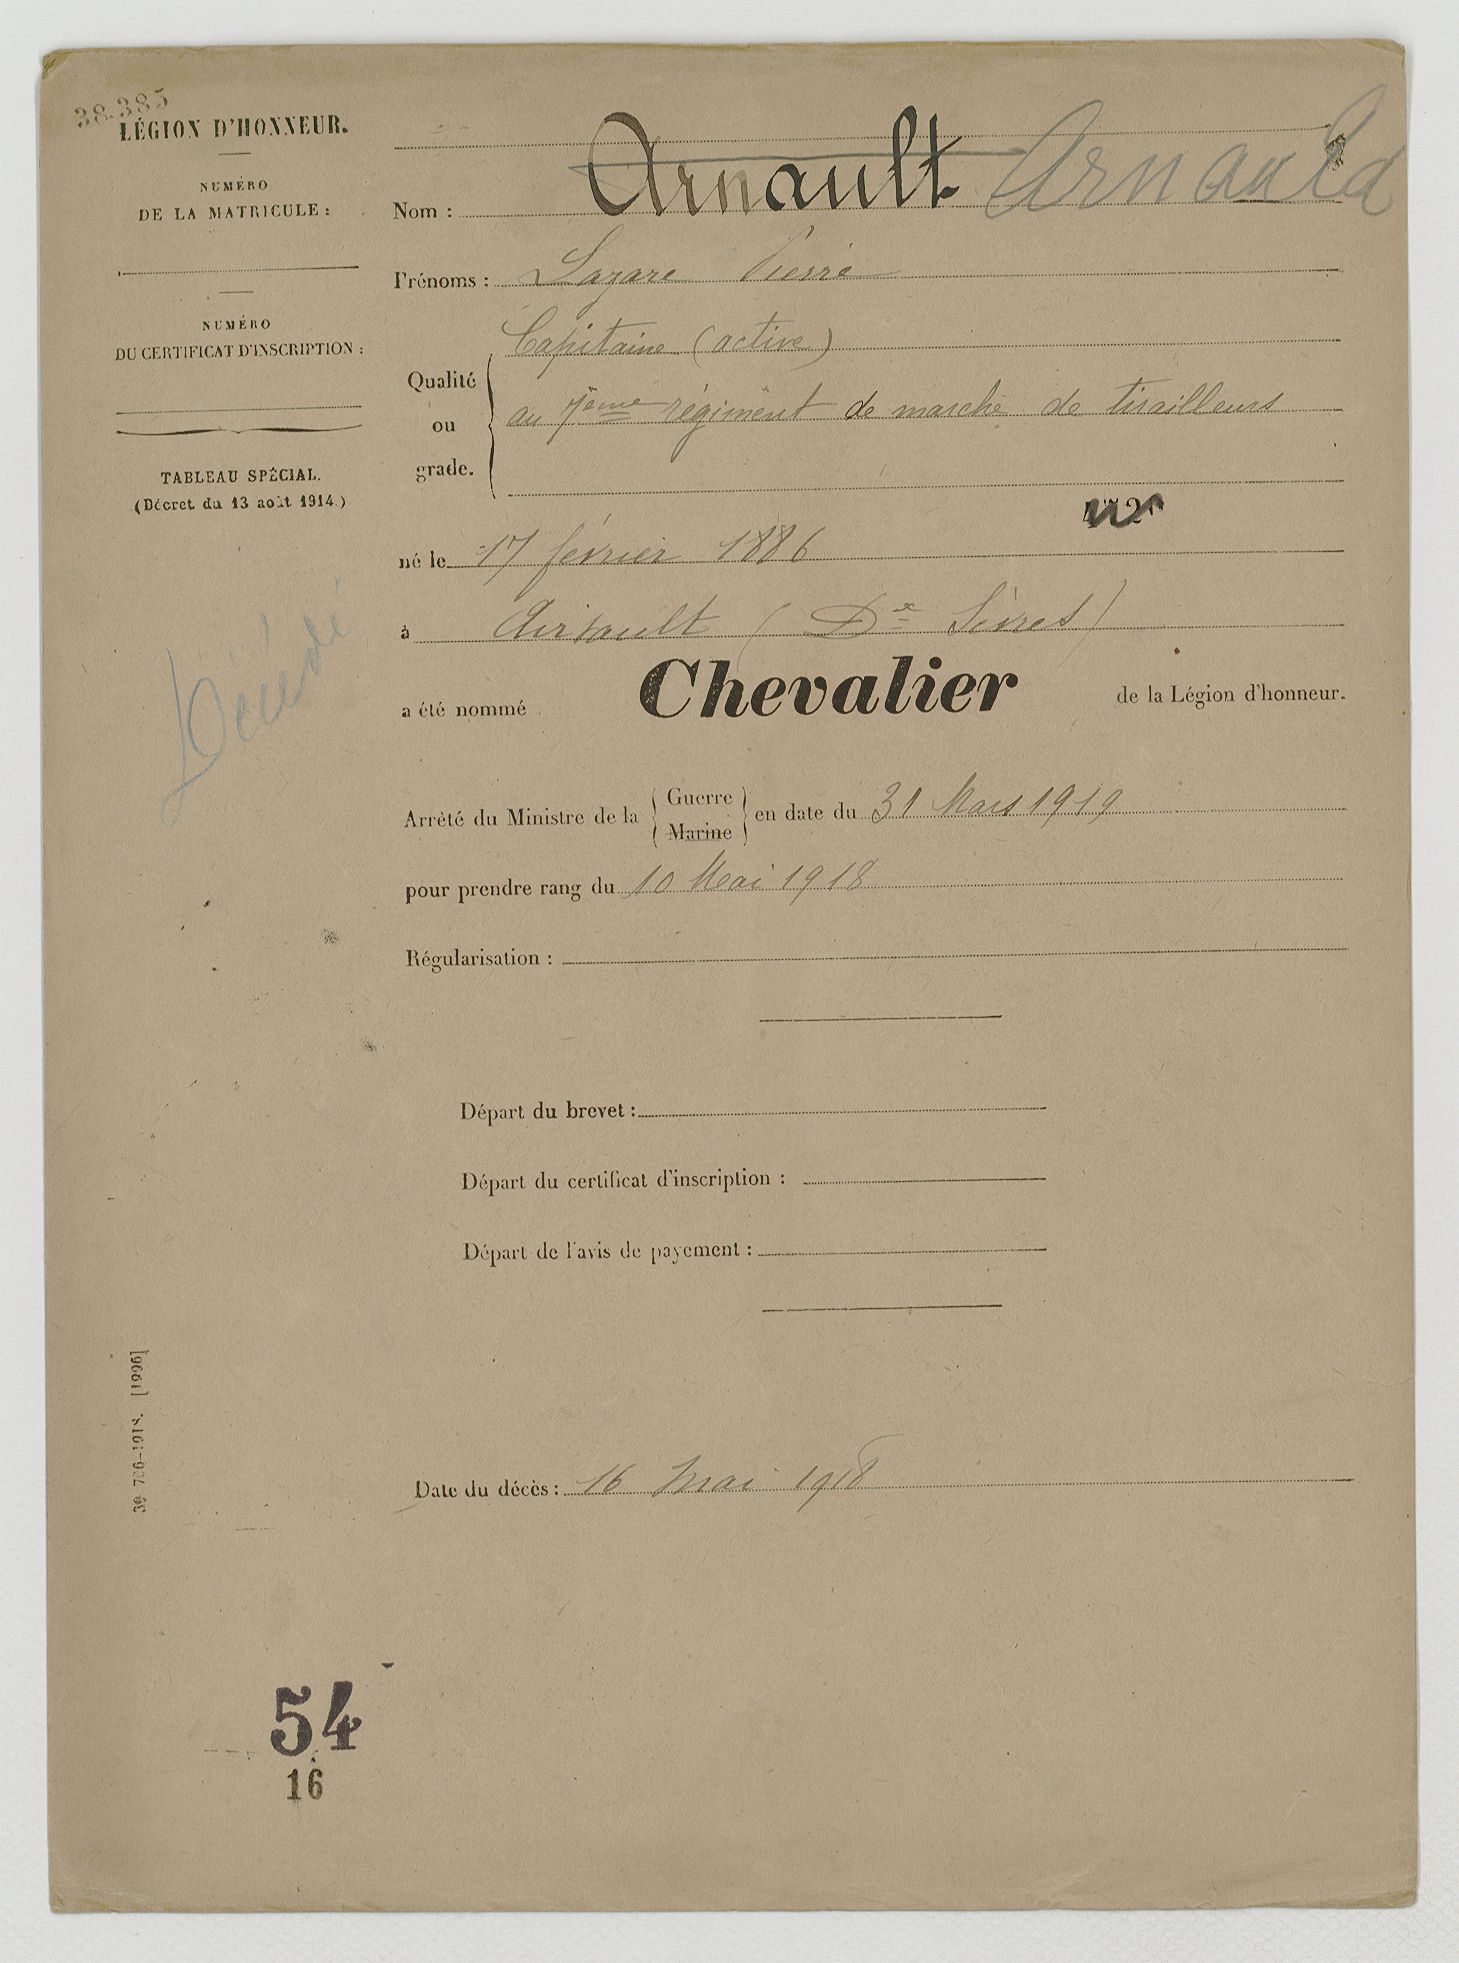 38.385
LÉGION D'HONNEUR.
NUMÉRO
DE LA MATRICULE :
NUMÉRO
DU CERTIFICAT D'INSCRIPTION :
TABLEAU SPÉCIAL.
(Décret du 13 août 1914.)
Décédé
Nom : Arnault Arnauld
Prénoms : Lazare Pierre
Qualité ou grade. Capitaine (active)
au 7ème régiment de marche de tirailleurs
né le 17 février 1886
à Airvault (Dx Sèvres)
a été nommé Chevalier de la Légion d'honneur.
Arrêté du Ministre de la Guerre Marine en date du 31 Mars 1919
pour prendre rang du 10 Mai 1918
Régularisation :
Départ du brevet :
Départ du certificat d'inscription :
Départ de l'avis de payement :
Date du décès : 16 Mai 1918
39-706-1918. [1996]
54
16